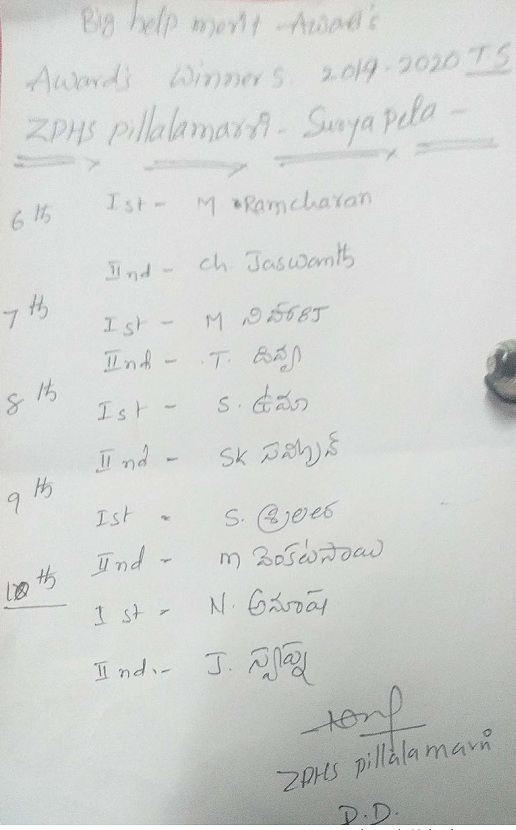 Big help merit Award's
Award's Winners. 2019-2020 TS
ZPHS pillalamarri - Suryapeta -
6th Ist - M Ramcharan
IInd - Ch. Jaswanth
7th Ist - M
IInd - T. దివ్య
8th Ist - S. ఉమా
IInd - SK
9th Ist - S.
IInd - M వెంకటసాయి
10th Ist - N.
IInd - J. స్వప్న
ZPHS pillalamarri
D.D.